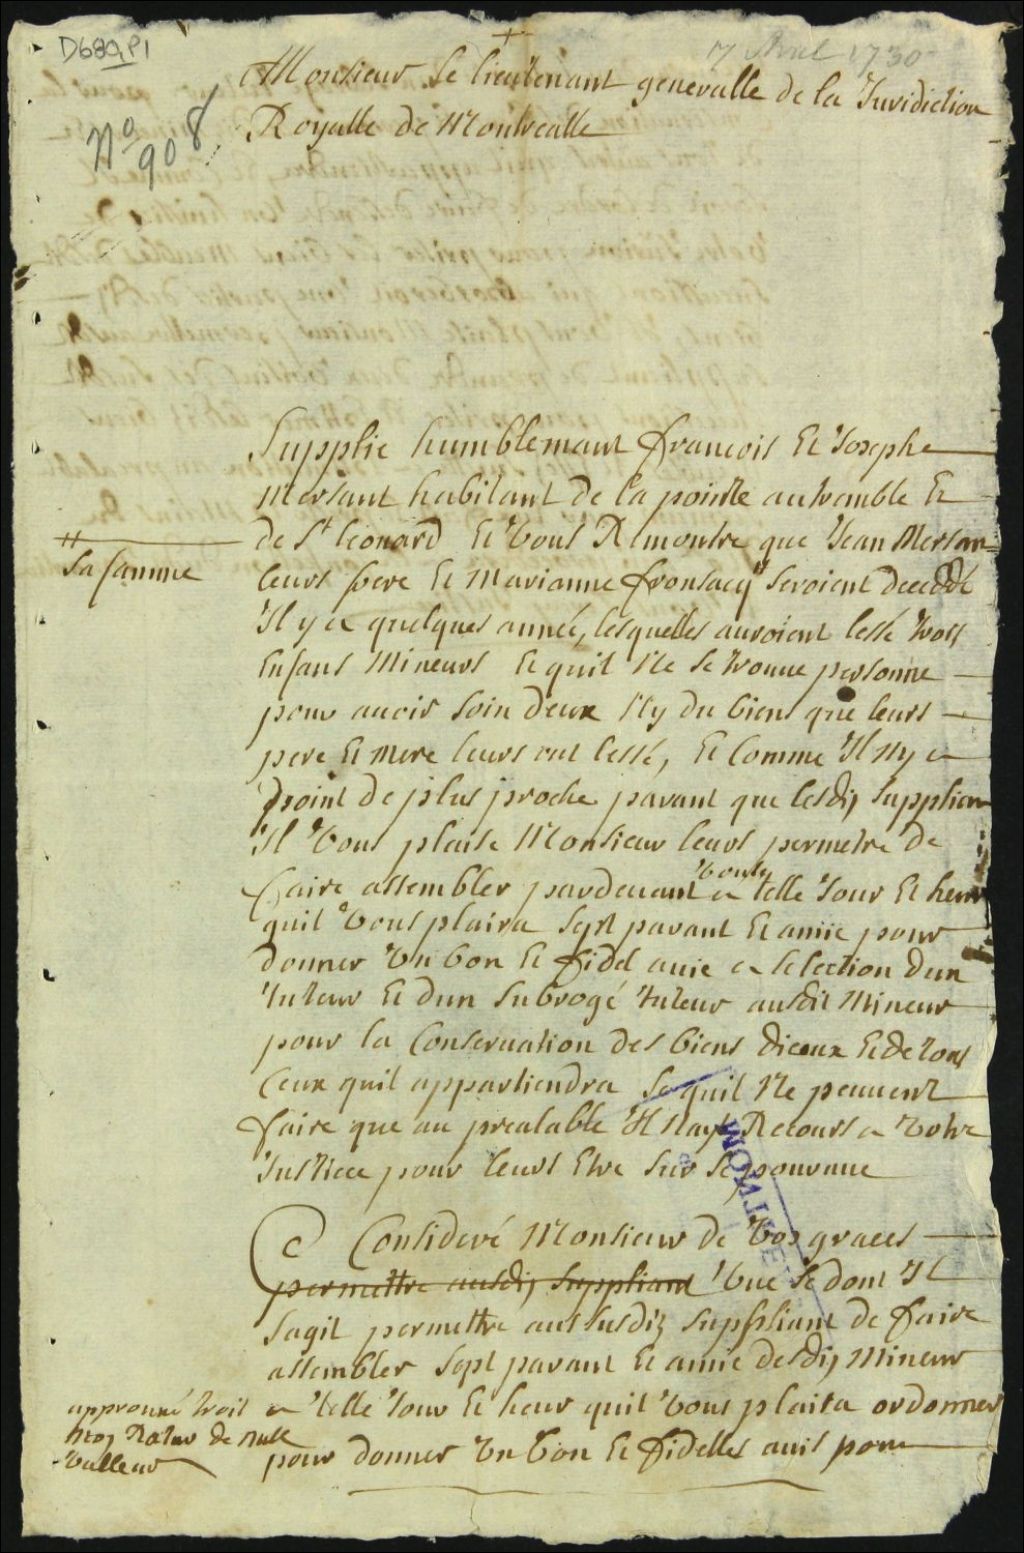 D680, P1
7 Avril 1730
No 908
Monsieur le lieutenant generalle de la Juridiction
Royalle de Montrealle
Supplie humblemant francois Et Josephe
Mersant habitant de la pointe autramble Et
de St leonard Et vous Remontre que Jean Mersan
sa famme
leurs frere Et Marianne fronsacq seroient decedé
Il y a quelques année, lesquelles auroient lessé trois
Enfans Mineurs Et quil Ne se trouue personne
pour auoir soin deux Ny du bien que leurs
pere Et Mere leurs ont lessé, Et Comme Il Ny a
point de plus proche parant que lesdis supplian
Il vous plaise Monsieur leurs permetre de
faire assembler pardeuant vous a telle Jour Et heur
quil vous plaira sept parant Et amie pour
donner Un bon Et fidel auie a lelection dun
tuteur Et dun subrogé tuteur ausdit Mineur
pour la Conseruation des biens diceux Et de tous
Ceux quil appartiendra se quil Ne peuuent
faire que au prealable Il Nays Recours a votre
Justice pour leurs Etre sur se pouruue
Ce Consideré Monsieur de vos graces
permettre ausdis suppliant Vue se dont Il
sagit permettre aus susdis suppliant de faire
assembler sept parant Et amie desdis Mineur
a telle Jour Et heur quil vous plaira ordonner
approuué trois
mos Ratur de Nulle
valleur
pour donner Un bon Et fidelles auis pour
MONTRE